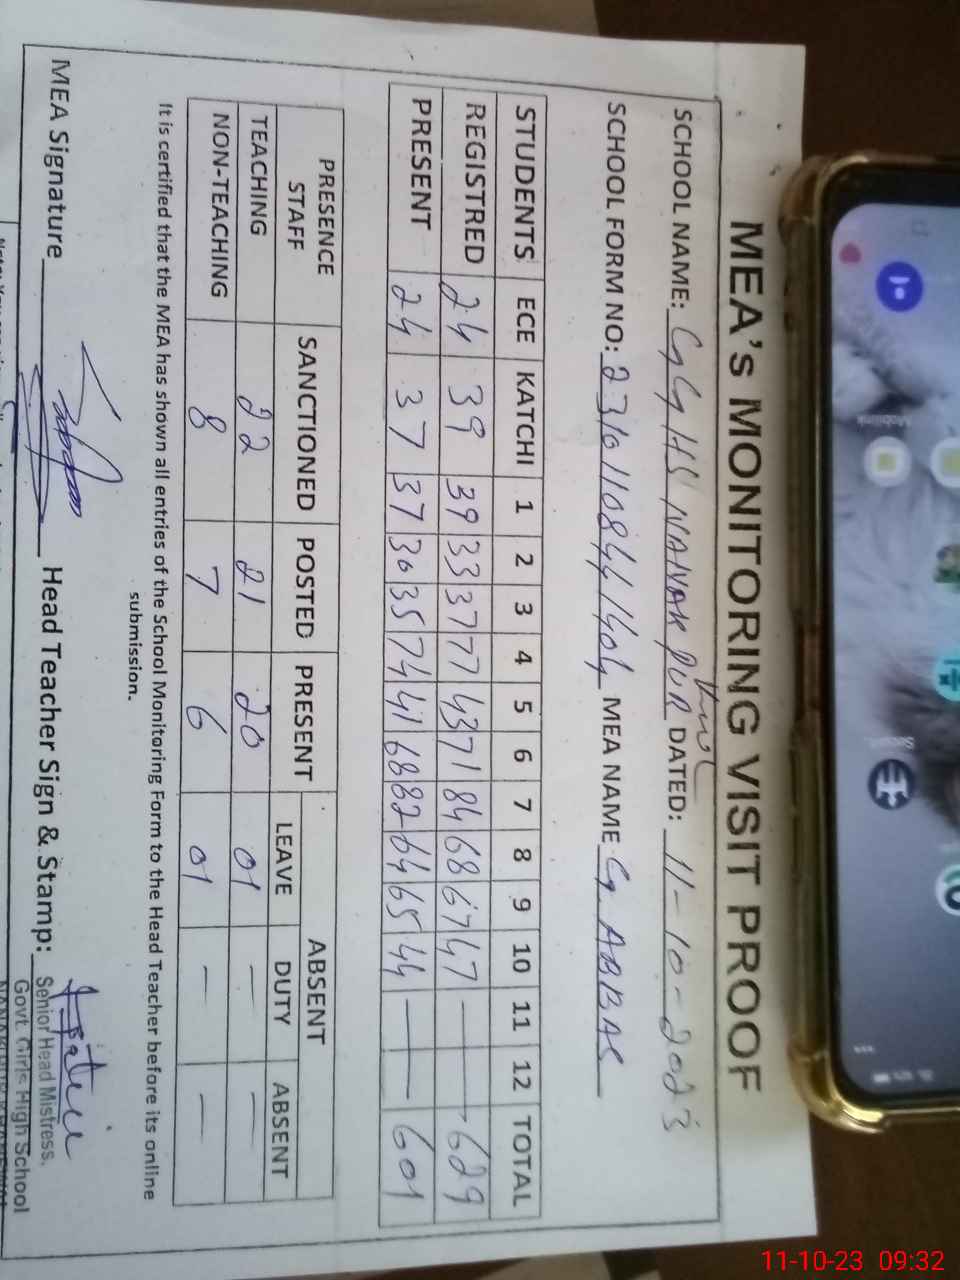 MEA's MONITORING VISIT PROOF
SCHOOL NAME: GGHS NANAK PUR DATED: 11-10-2023
SCHOOL FORM NO: MEA NAME G. ABBAS
STUDENTS ECE KATCHI 1 2 3 4 5 6 7 8 9 10 11 12 TOTAL
REGISTRED 24 39 39 33 37 77 43 71 84 68 67 47 — — 629
PRESENT 24 37 37 30 35 74 41 68 82 64 65 44 — — 601
PRESENCE STAFF SANCTIONED POSTED PRESENT ABSENT
LEAVE DUTY ABSENT
TEACHING 22 21 20 01 — —
NON-TEACHING 8 7 6 01 — —
It is certified that the MEA has shown all entries of the School Monitoring Form to the Head Teacher before its online
submission.
MEA Signature Head Teacher Sign & Stamp:
Senior Head Mistress.
Govt. Girls High School
11-10-23 09:32